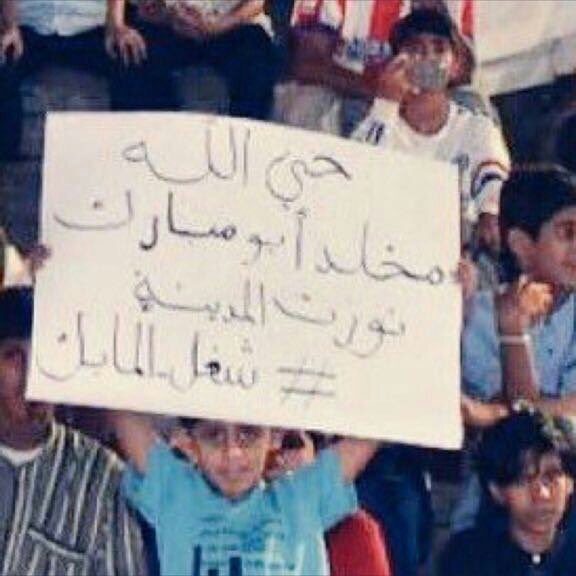 حي الله
مخلد أبو مبارك
نورت المدينة
# شغل_المابل